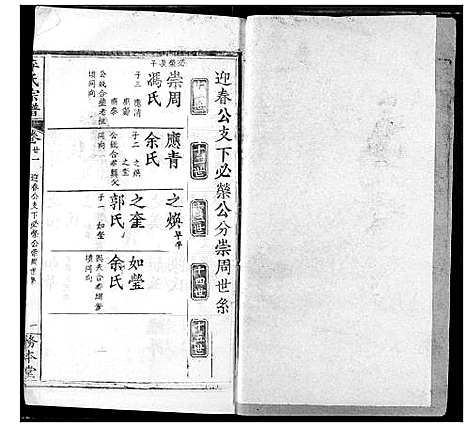 迎春公支下必榮公分崇周世系
十一世
十二世
十三世
十四世
十五世
崇周
馮氏
子三
應青
余氏
子二 之煥
之奎
之煥
早卒
之奎
郭氏
子一 如瑩
如瑩
余氏
氏宗譜
卷廿一
迎春公支下必榮公崇周世系
一
務本堂